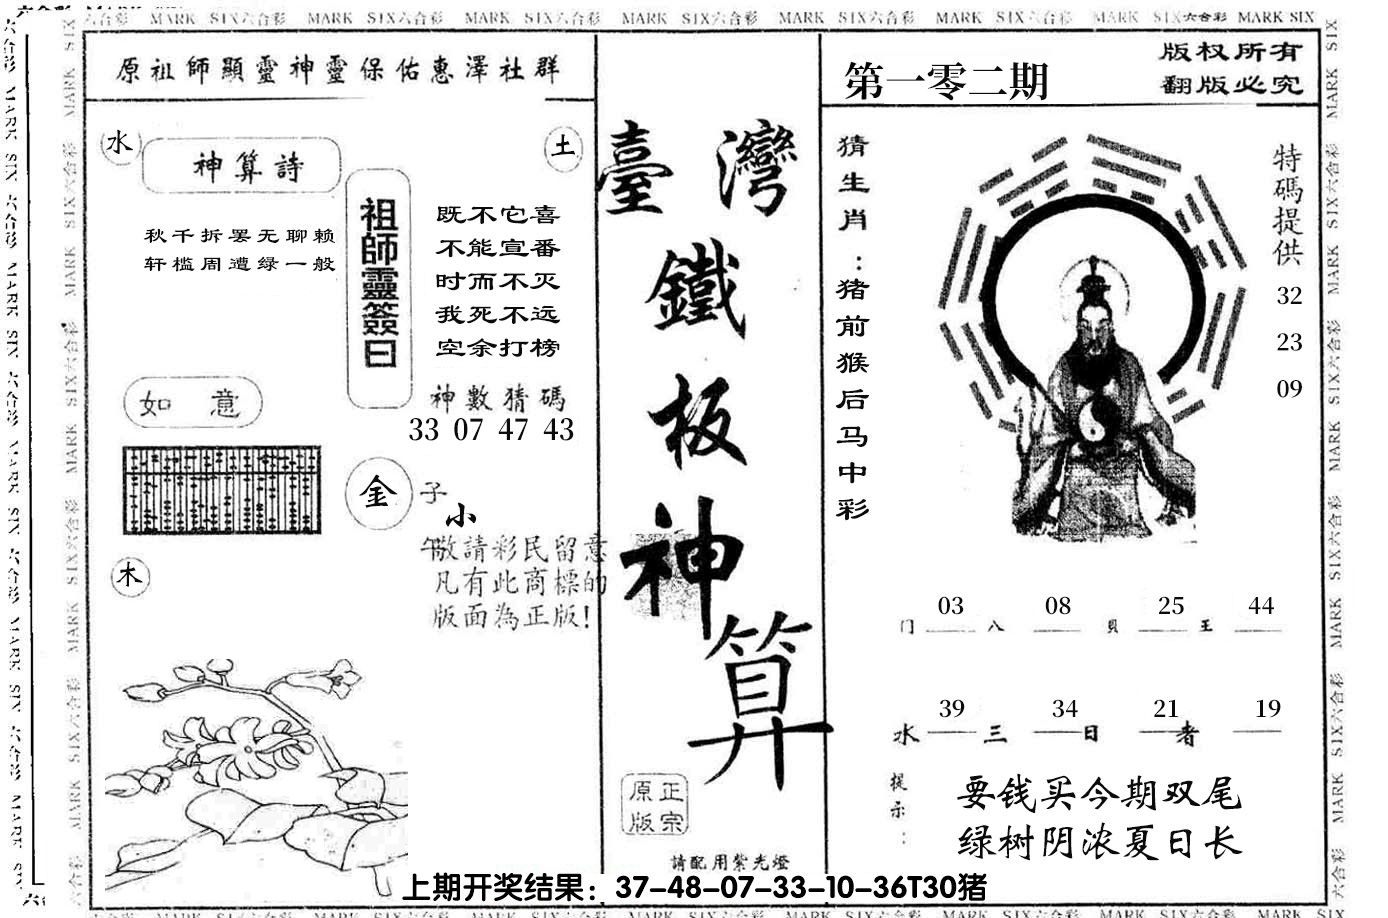 MARK SIX六合彩 MARK SIX六合彩 MARK SIX六合彩 MARK SIX六合彩 MARK SIX六合彩 MARK SIX六合彩 MARK SIX六合彩 MARK SIX
原祖師顯靈神靈保佑惠澤社群
水
神算詩
土
秋千拆罢无聊赖
轩槛周遭绿一般
祖師靈簽曰
既不它喜
不能宣番
时而不灭
我死不远
空余打榜
神數猜碼
33 07 47 43
如 意
金
子
小
午敬請彩民留意
凡有此商標的
版面為正版!
木
臺灣
鐵
板
神
算
正宗
原版
請配用紫光燈
第一零二期
版权所有
翻版必究
猜生肖:猪前猴后马中彩
特碼提供
32
23
09
03 08 25 44
门 八 貝 王
39 34 21 19
水 三 日 者
提示:
要钱买今期双尾
绿树阴浓夏日长
上期开奖结果：37-48-07-33-10-36T30猪